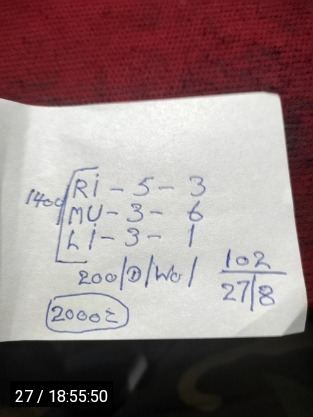 1400 RI - 5 - 3
MU - 3 - 6
LI - 3 - 1
200/D/WO/
102
27/8
2000=
27 / 18:55:50